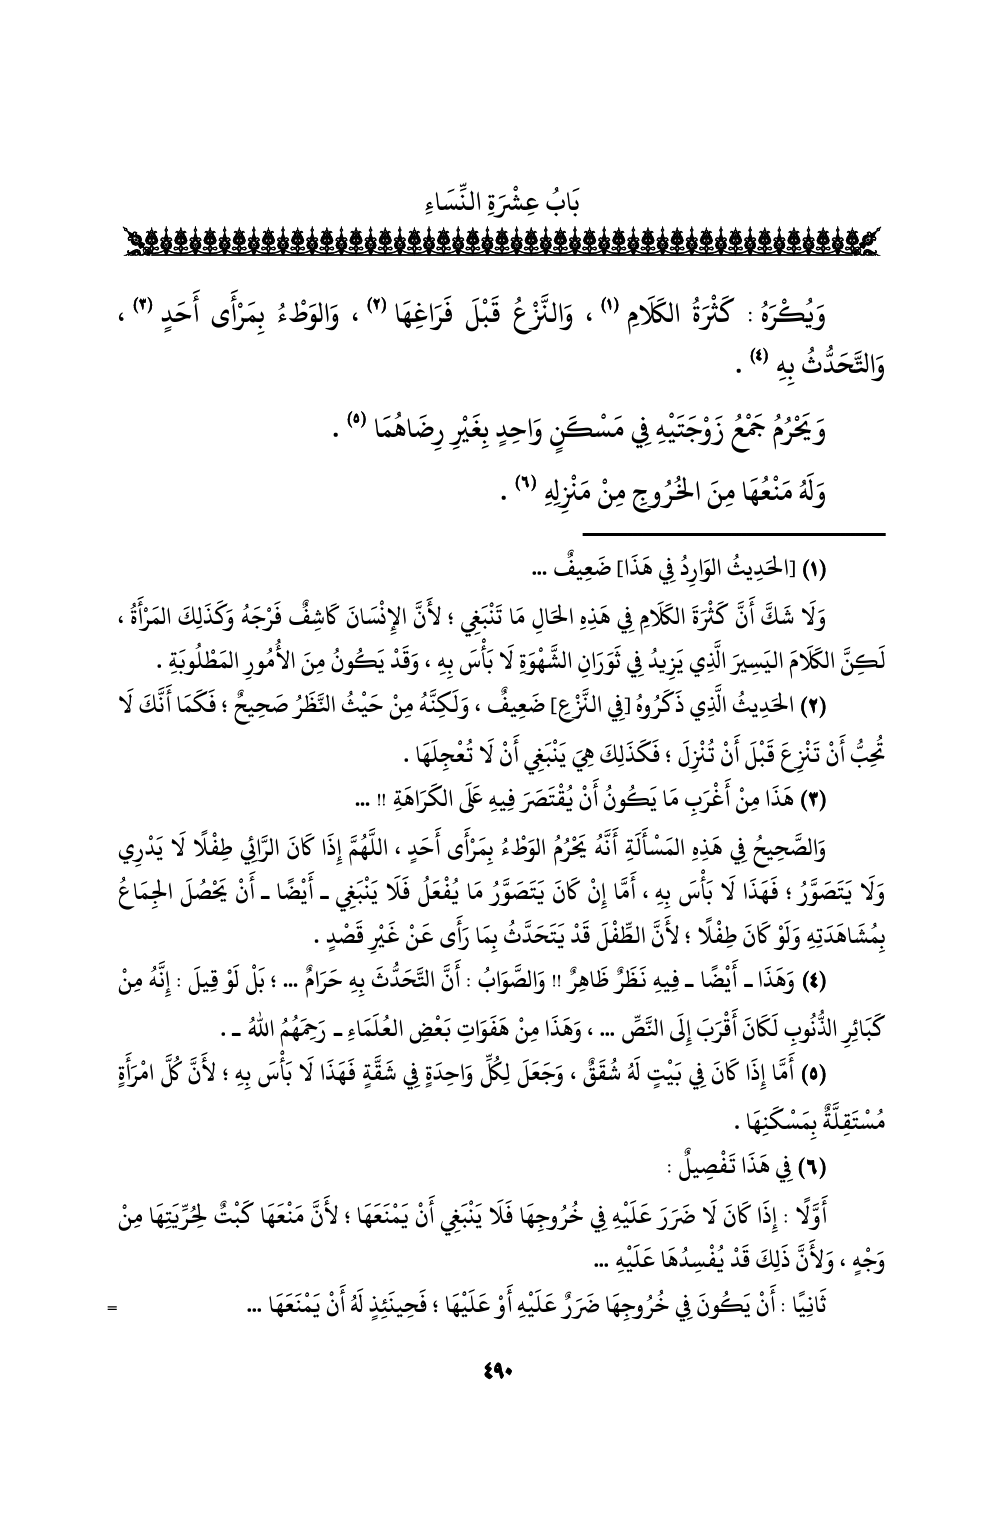 بَابُ عِشْرَةِ النِّسَاءِ
وَيُكْرَهُ : كَثْرَةُ الكَلَامِ (١) ، وَالنَّزْعُ قَبْلَ فَرَاغِهَا (٢) ، وَالوَطْءُ بِمَرْأَى أَحَدٍ (٣) ،
وَالتَّحَدُّثُ بِهِ (٤) .
وَيَحْرُمُ جَمْعُ زَوْجَتَيْهِ فِي مَسْكَنٍ وَاحِدٍ بِغَيْرِ رِضَاهُمَا (٥) .
وَلَهُ مَنْعُهَا مِنَ الخُرُوجِ مِنْ مَنْزِلِهِ (٦) .
(١) [الحَدِيثُ الوَارِدُ فِي هَذَا] ضَعِيفٌ ...
وَلَا شَكَّ أَنَّ كَثْرَةَ الكَلَامِ فِي هَذِهِ الحَالِ مَا تَنْبَغِي ؛ لأَنَّ الإِنْسَانَ كَاشِفٌ فَرْجَهُ وَكَذَلِكَ المَرْأَةُ ،
لَكِنَّ الكَلَامَ اليَسِيرَ الَّذِي يَزِيدُ فِي ثَوَرَانِ الشَّهْوَةِ لَا بَأْسَ بِهِ ، وَقَدْ يَكُونُ مِنَ الأُمُورِ المَطْلُوبَةِ .
(٢) الحَدِيثُ الَّذِي ذَكَرُوهُ [فِي النَّزْعِ] ضَعِيفٌ ، وَلَكِنَّهُ مِنْ حَيْثُ النَّظَرُ صَحِيحٌ ؛ فَكَمَا أَنَّكَ لَا
تُحِبُّ أَنْ تَنْزِعَ قَبْلَ أَنْ تُنْزِلَ ؛ فَكَذَلِكَ هِيَ يَنْبَغِي أَنْ لَا تُعْجِلَهَا .
(٣) هَذَا مِنْ أَغْرَبِ مَا يَكُونُ أَنْ يُقْتَصَرَ فِيهِ عَلَى الكَرَاهَةِ !! ...
وَالصَّحِيحُ فِي هَذِهِ المَسْأَلَةِ أَنَّهُ يَحْرُمُ الوَطْءُ بِمَرْأَى أَحَدٍ ، اللَّهُمَّ إِذَا كَانَ الرَّائِي طِفْلًا لَا يَدْرِي
وَلَا يَتَصَوَّرُ ؛ فَهَذَا لَا بَأْسَ بِهِ ، أَمَّا إِنْ كَانَ يَتَصَوَّرُ مَا يُفْعَلُ فَلَا يَنْبَغِي ـ أَيْضًا ـ أَنْ يَحْصُلَ الجِمَاعُ
بِمُشَاهَدَتِهِ وَلَوْ كَانَ طِفْلًا ؛ لأَنَّ الطِّفْلَ قَدْ يَتَحَدَّثُ بِمَا رَأَى عَنْ غَيْرِ قَصْدٍ .
(٤) وَهَذَا ـ أَيْضًا ـ فِيهِ نَظَرٌ ظَاهِرٌ !! وَالصَّوَابُ : أَنَّ التَّحَدُّثَ بِهِ حَرَامٌ ... ؛ بَلْ لَوْ قِيلَ : إِنَّهُ مِنْ
كَبَائِرِ الذُّنُوبِ لَكَانَ أَقْرَبَ إِلَى النَّصِّ ... ، وَهَذَا مِنْ هَفَوَاتِ بَعْضِ العُلَمَاءِ ـ رَحِمَهُمُ اللهُ ـ .
(٥) أَمَّا إِذَا كَانَ فِي بَيْتٍ لَهُ شُقَقٌ ، وَجَعَلَ لِكُلِّ وَاحِدَةٍ فِي شَقَّةٍ فَهَذَا لَا بَأْسَ بِهِ ؛ لأَنَّ كُلَّ امْرَأَةٍ
مُسْتَقِلَّةٌ بِمَسْكَنِهَا .
(٦) فِي هَذَا تَفْصِيلٌ :
أَوَّلًا : إِذَا كَانَ لَا ضَرَرَ عَلَيْهِ فِي خُرُوجِهَا فَلَا يَنْبَغِي أَنْ يَمْنَعَهَا ؛ لأَنَّ مَنْعَهَا كَبْتٌ لِحُرِّيَتِهَا مِنْ
وَجْهٍ ، وَلأَنَّ ذَلِكَ قَدْ يُفْسِدُهَا عَلَيْهِ ...
ثَانِيًا : أَنْ يَكُونَ فِي خُرُوجِهَا ضَرَرٌ عَلَيْهِ أَوْ عَلَيْهَا ؛ فَحِينَئِذٍ لَهُ أَنْ يَمْنَعَهَا ... =
٤٩٠